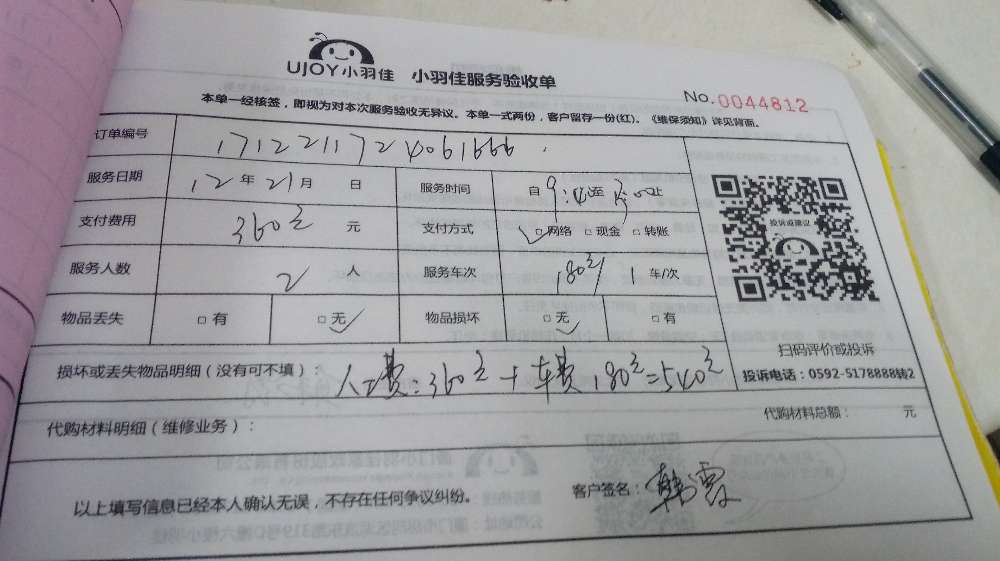 UJOY小羽佳 小羽佳服务验收单
No.0044812
本单一经核签，即视为对本次服务验收无异议。本单一式两份，客户留存一份(红)。《维保须知》详见背面。
订单编号 1712211724061666
服务日期 12年21月 日 服务时间 自9:40至 :00止
支付费用 360元 元 支付方式 □网络 □现金 □转账
投诉或建议
服务人数 2人 服务车次 180元/1车/次
物品丢失 □有 □无 物品损坏 □无 □有
扫码评价或投诉
损坏或丢失物品明细（没有可不填）： 人工费:360元+车费180元=540元
投诉电话：0592-5178888转2
代购材料明细（维修业务）： 代购材料总额： 元
以上填写信息已经本人确认无误，不存在任何争议纠纷。 客户签名：韩霞